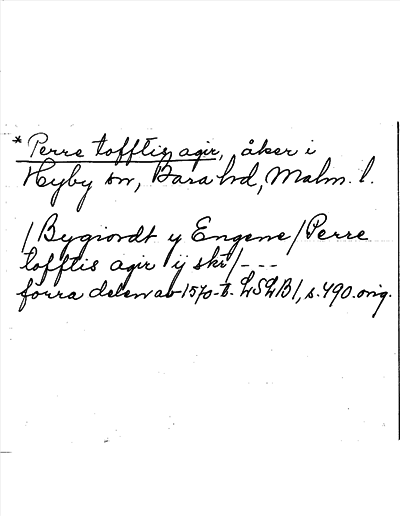 * Perre tofftis agir, åker i
Hyby sn, Bara hd, Malm. l.
/ Bygiordt y Engene / Perre
tofftis agir ij skr / - - -
förra delen av 1570-t. LSLB 1, s. 490. orig.